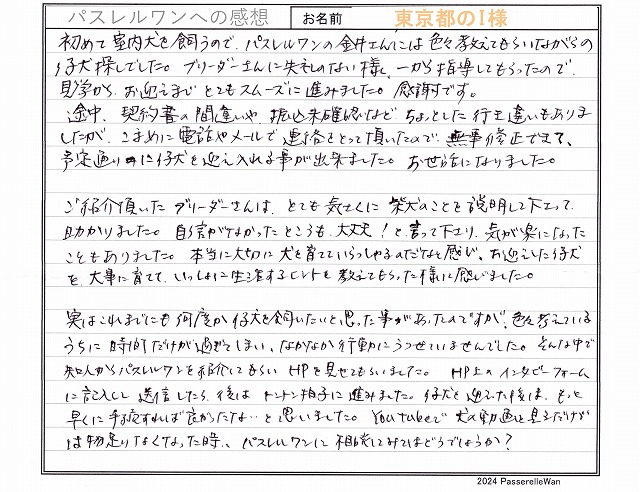 パスレルワンへの感想 お名前 東京都のI様
初めて室内犬を飼うので、パスレルワンの金井さんには色々教えてもらいながらの
仔犬探しでした。ブリーダーさんに失礼のない様、一から指導してもらったので、
見学から、お迎えまでとてもスムーズに進みました。感謝です。
途中、契約書の間違いや振込未確認など、ちょっとした行き違いもありま
したが、こまめに電話やメールで連絡をとって頂いたので、無事修正できて、
予定通りに仔犬を迎え入れる事が出来ました。お世話になりました。
ご紹介頂いたブリーダーさんは、とても気さくに柴犬のことを説明して下さって、
助かりました。自信がなかったところも、大丈夫！と言って下さり、気が楽になった
こともありました。本当に大切に犬を育てていらっしゃるのだなと感じ、お迎えした仔犬
を、大事に育てて、いっしょに生活するヒントを教えてもらった様に感じました。
実はこれまでにも何度か仔犬を飼いたいと思った事があったのですが、色々考えている
うちに時間だけが過ぎてしまい、なかなか行動にうつせていませんでした。そんな中で
知人からパスレルワンを紹介してもらい、HPを見せてもらいました。HP上のインタビューフォーム
に記入して送信したら、後はトントン拍子に進みました。仔犬を迎えた後は、もっと
早くに手を付ければ良かったな…と思いました。YouTubeで犬の動画を見るだけで
は物足りなくなった時、パスレルワンに相談してみてはどうでしょうか？
2024 PasserelleWan